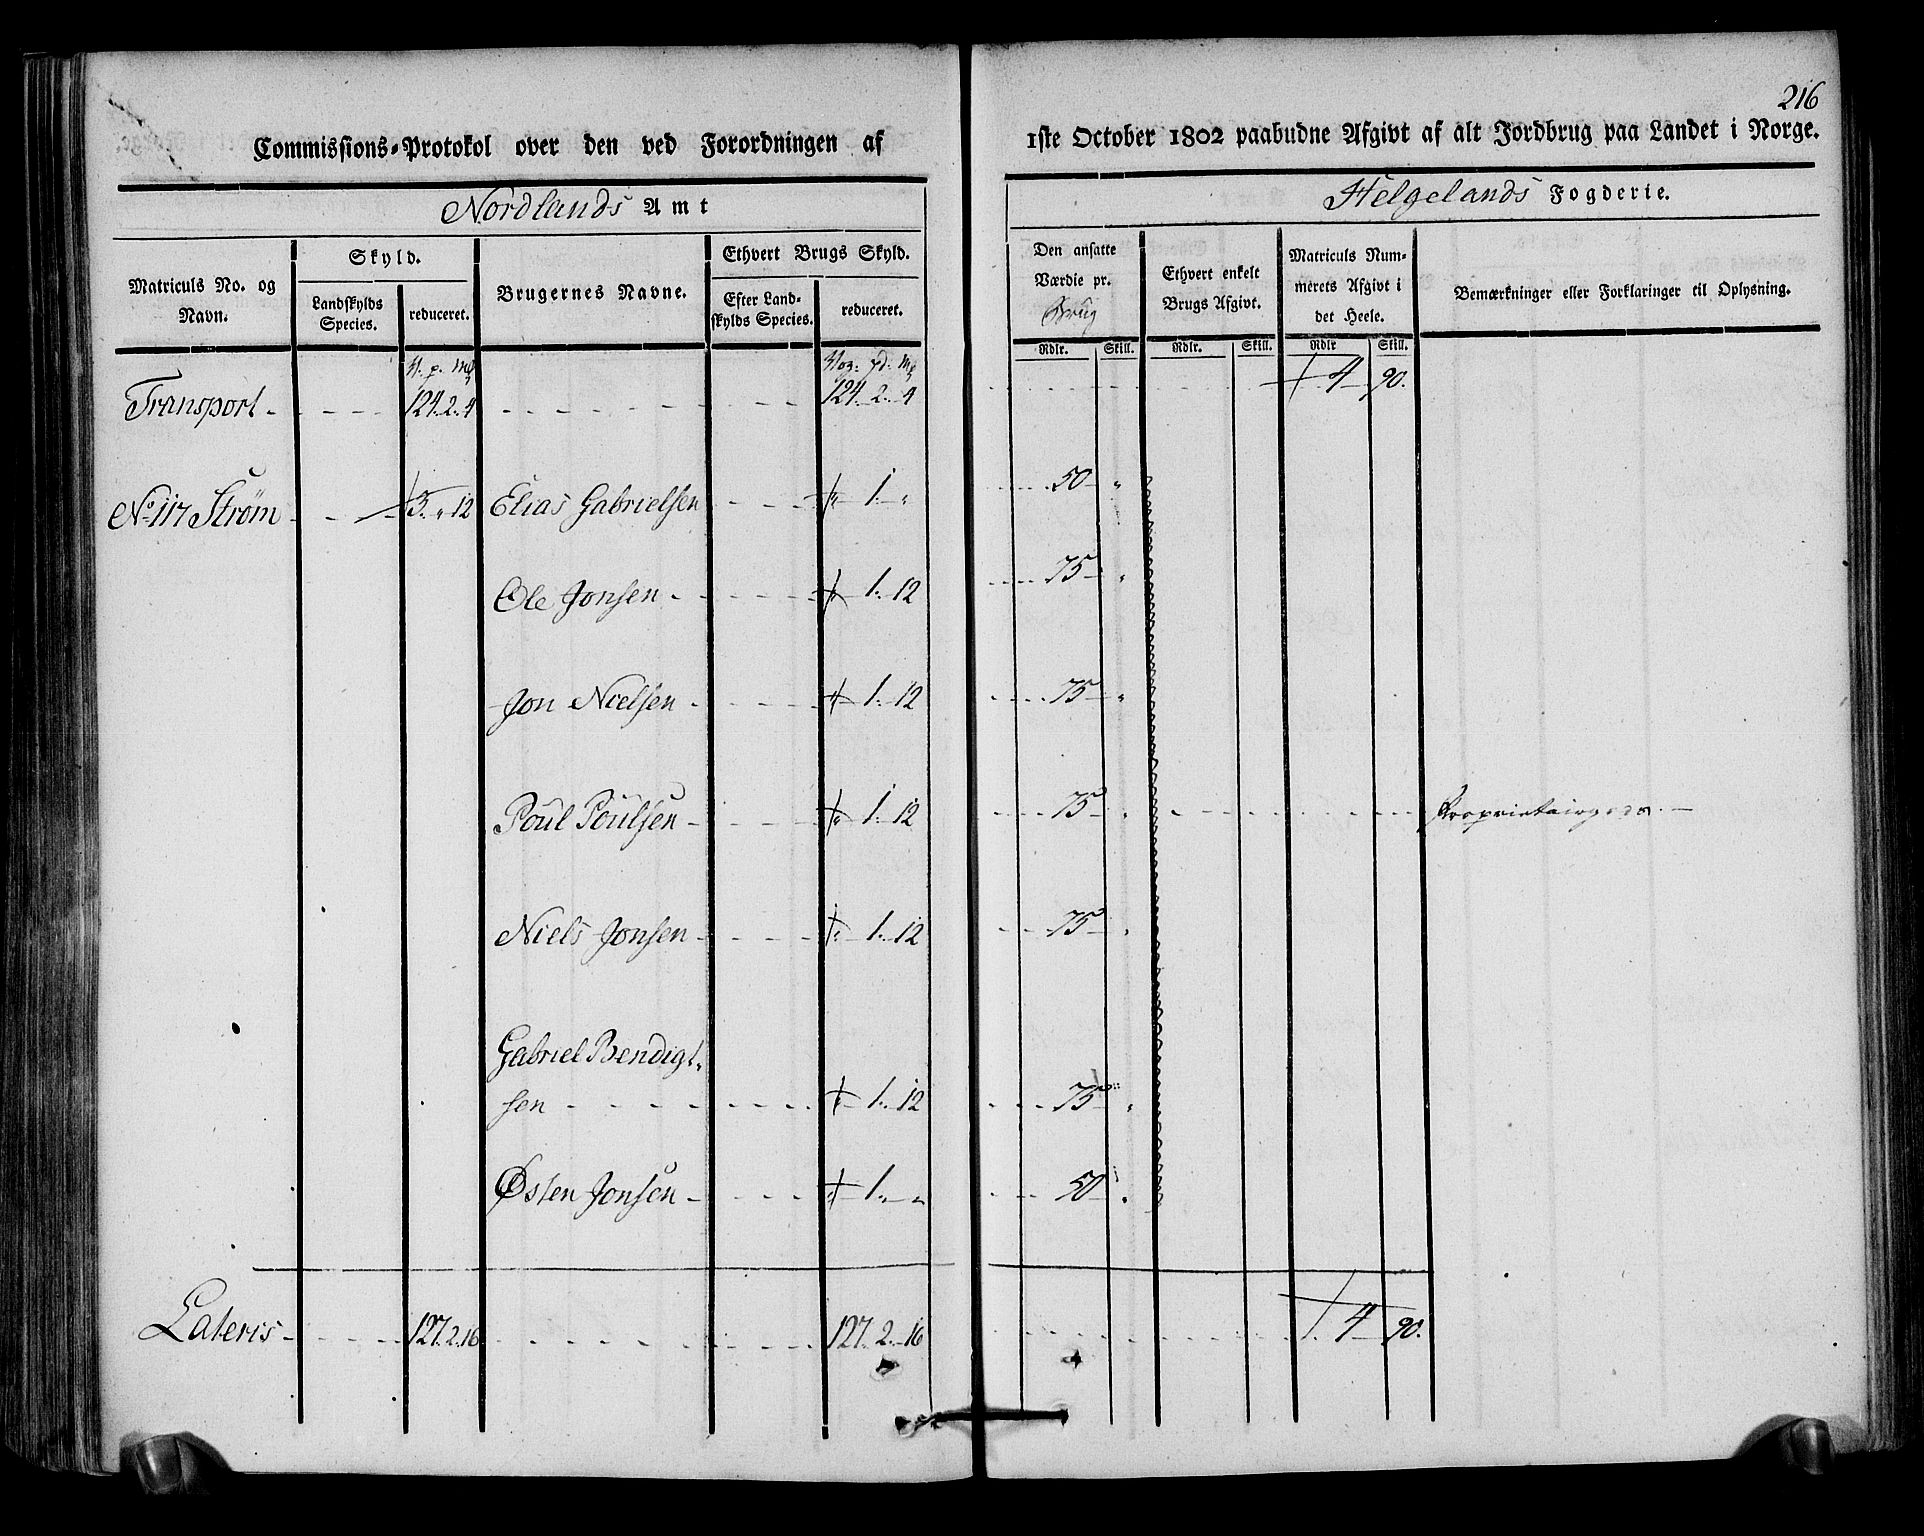 216
Commissions-Protokol over den ved Forordningen af 1ste October 1802 paabudne Afgivt af alt Jordbrug paa Landet i Norge.
Nordlands Amt
Helgelands Fogderie.
Matriculs No. og Navn.
Skyld.
Landskylds Species.
reduceret.
Brugernes Navne.
Ethvert Brugs Skyld.
Efter Landskylds Species.
reduceret.
Den ansatte Værdie pr. Brug
Rdlr. Skill.
Ethvert enkelt Brugs Afgivt.
Rdlr. Skill.
Matriculs Nummerets Afgivt i det Heele.
Rdlr Skill.
Bemærkninger eller Forklaringer til Oplysning.
Transport 124. 2. 4 124. 2. 4 4 90.
No. 117 Strøm 3. " 12 Elias Gabrielsen " 1. " 50 "
Ole Jonsen " 1. 12 75 "
Jon Nielsen " 1. 12 75 "
Poul Poulsen " 1. 12 75 "
Niels Jonsen " 1. 12 75 "
Gabriel Bendigt-
sen " 1. 12 75 "
Østen Jonsen " 1. " 50 "
Lateris 127. 2. 16 127. 2. 16 4 90.